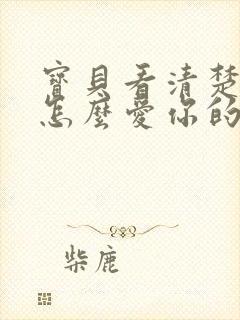 寶貝看清楚
怎麼愛你的
柴鹿